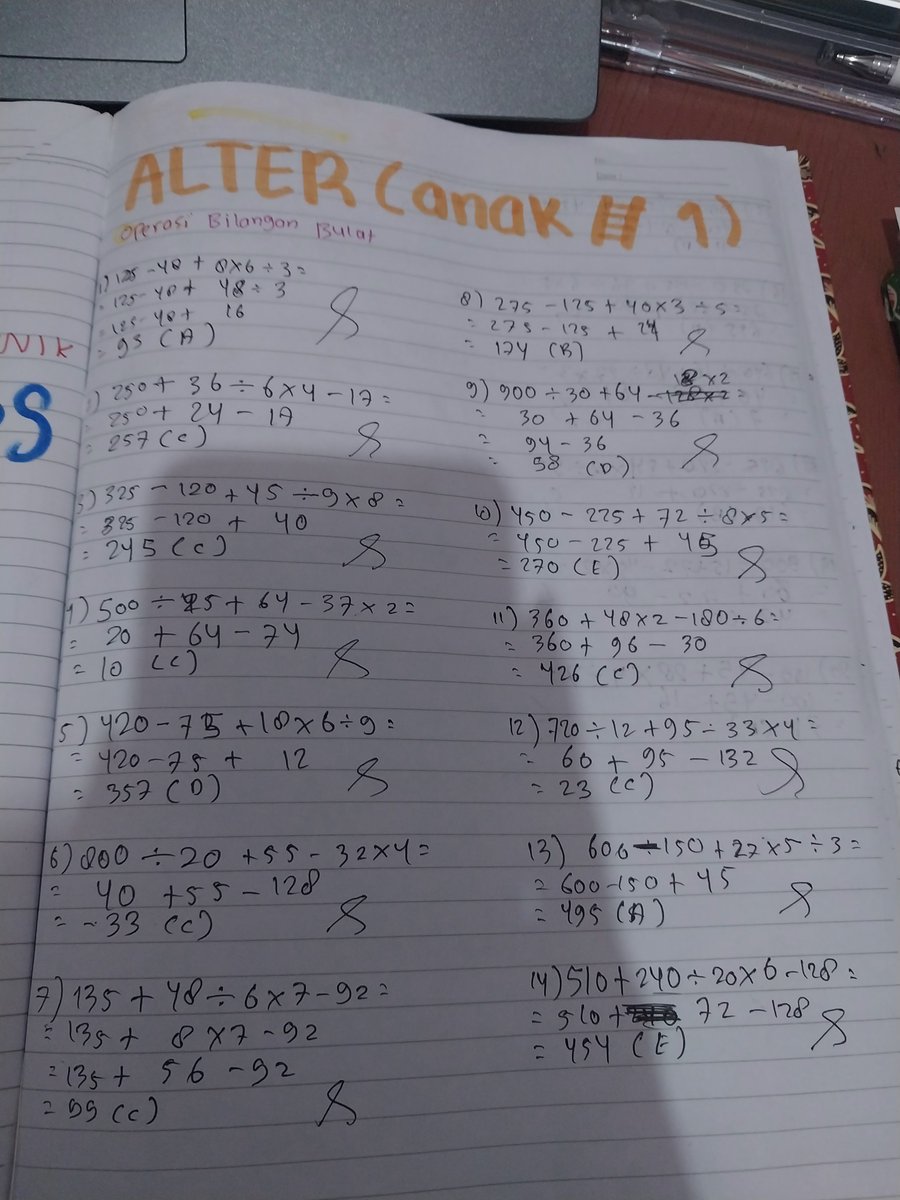 ALTER (anak # 1)
Operasi Bilangan Bulat
1) 125 - 48 + 8 x 6 ÷ 3 =
= 125 - 48 + 48 ÷ 3
= 125 - 48 + 16
= 93 (A)
2) 250 + 36 ÷ 6 x 4 - 17 =
= 250 + 24 - 17
= 257 (C)
3) 325 - 120 + 45 ÷ 9 x 8 =
= 325 - 120 + 40
= 245 (C)
4) 500 ÷ 25 + 64 - 37 x 2 =
= 20 + 64 - 74
= 10 (C)
5) 420 - 75 + 18 x 6 ÷ 9 =
= 420 - 75 + 12
= 357 (D)
6) 800 ÷ 20 + 55 - 32 x 4 =
= 40 + 55 - 128
= -33 (C)
7) 135 + 48 ÷ 6 x 7 - 92 =
= 135 + 8 x 7 - 92
= 135 + 56 - 92
= 99 (C)
8) 275 - 125 + 40 x 3 ÷ 5 =
= 275 - 125 + 24
= 174 (B)
9) 900 ÷ 30 + 64 - 18 x 2 =
= 30 + 64 - 36
= 94 - 36
= 58 (D)
10) 450 - 225 + 72 ÷ 8 x 5 =
= 450 - 225 + 45
= 270 (E)
11) 360 + 48 x 2 - 180 ÷ 6 =
= 360 + 96 - 30
= 426 (C)
12) 720 ÷ 12 + 95 - 33 x 4 =
= 60 + 95 - 132
= 23 (C)
13) 600 - 150 + 27 x 5 ÷ 3 =
= 600 - 150 + 45
= 495 (A)
14) 510 + 240 ÷ 20 x 6 - 128 =
= 510 + 72 - 128
= 454 (E)
NIK
S